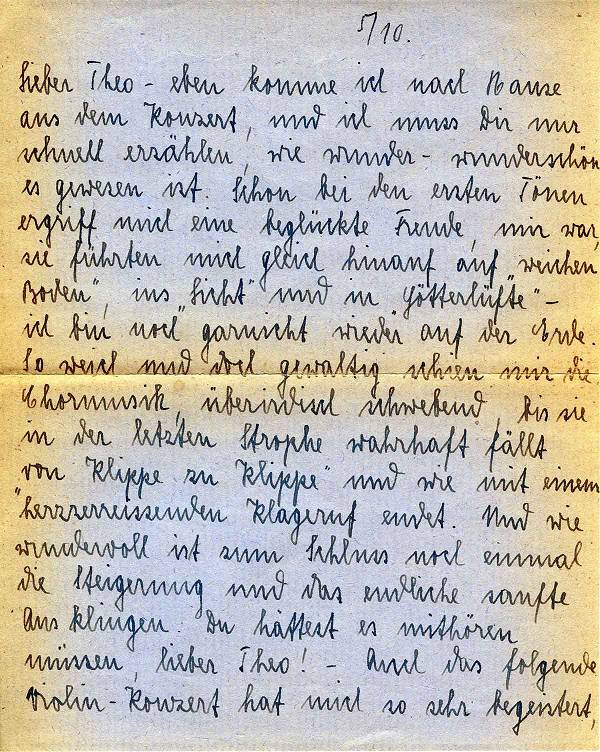 5/10.
Lieber Theo - eben komme ich nach Hause
aus dem Konzert, und ich muss Dir nur
schnell erzählen, wie wunder- wunderschön
es gewesen ist. Schon bei den ersten Tönen
ergriff mich eine beglückte Freude, mir war,
sie führten mich gleich hinauf auf „weichen
Boden", ins „Licht" und in „Götterlüfte" -
ich bin noch garnicht wieder auf der Erde.
So weich und doch gewaltig schien mir die
Chormusik, überirdisch schwebend, bis sie
in der letzten Strophe wahrhaft fällt
von „Klippe zu Klippe" und wie mit einem
herzzerreissenden Klageruf endet. Und wie
wundervoll ist zum Schluss noch einmal
die Steigerung und das endliche sanfte
Ausklingen. Du hättest es mithören
müssen, lieber Theo! - Auch das folgende
Violin-Konzert hat mich so sehr begeistert,